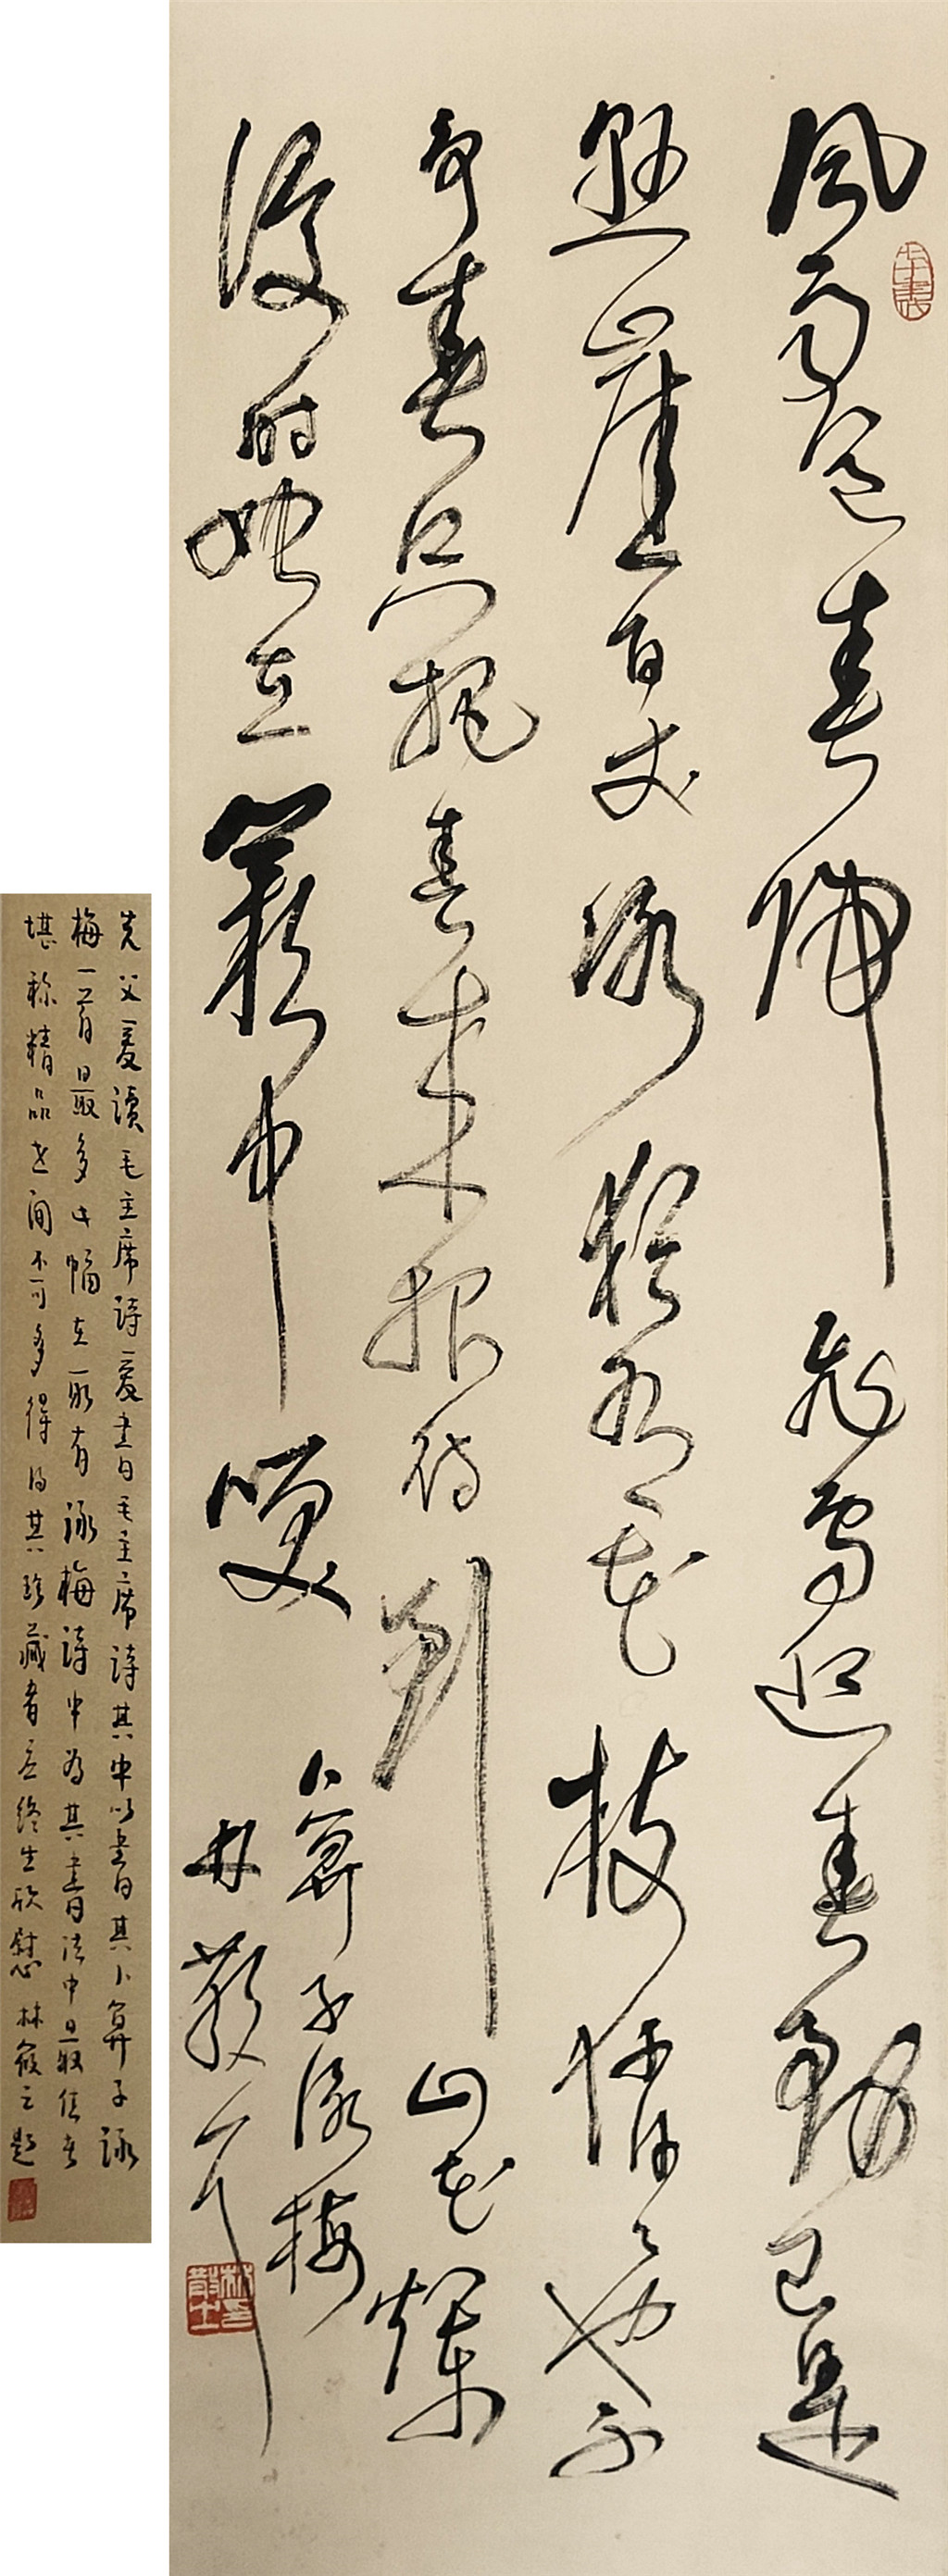 風雨送春歸飛雪迎春到已是
懸崖百丈冰猶有花枝俏々也不
争春只把春来報待到山花爛
漫时她在叢中笑
卜算子詠梅
林散耳
先父爱读毛主席诗爱書毛主席诗其中以書其卜算子詠
梅一首最多此幅在所有詠梅诗中为其書法中最佳者
堪称精品世间不可多得得其珍藏者终生欣慰 林筱之题